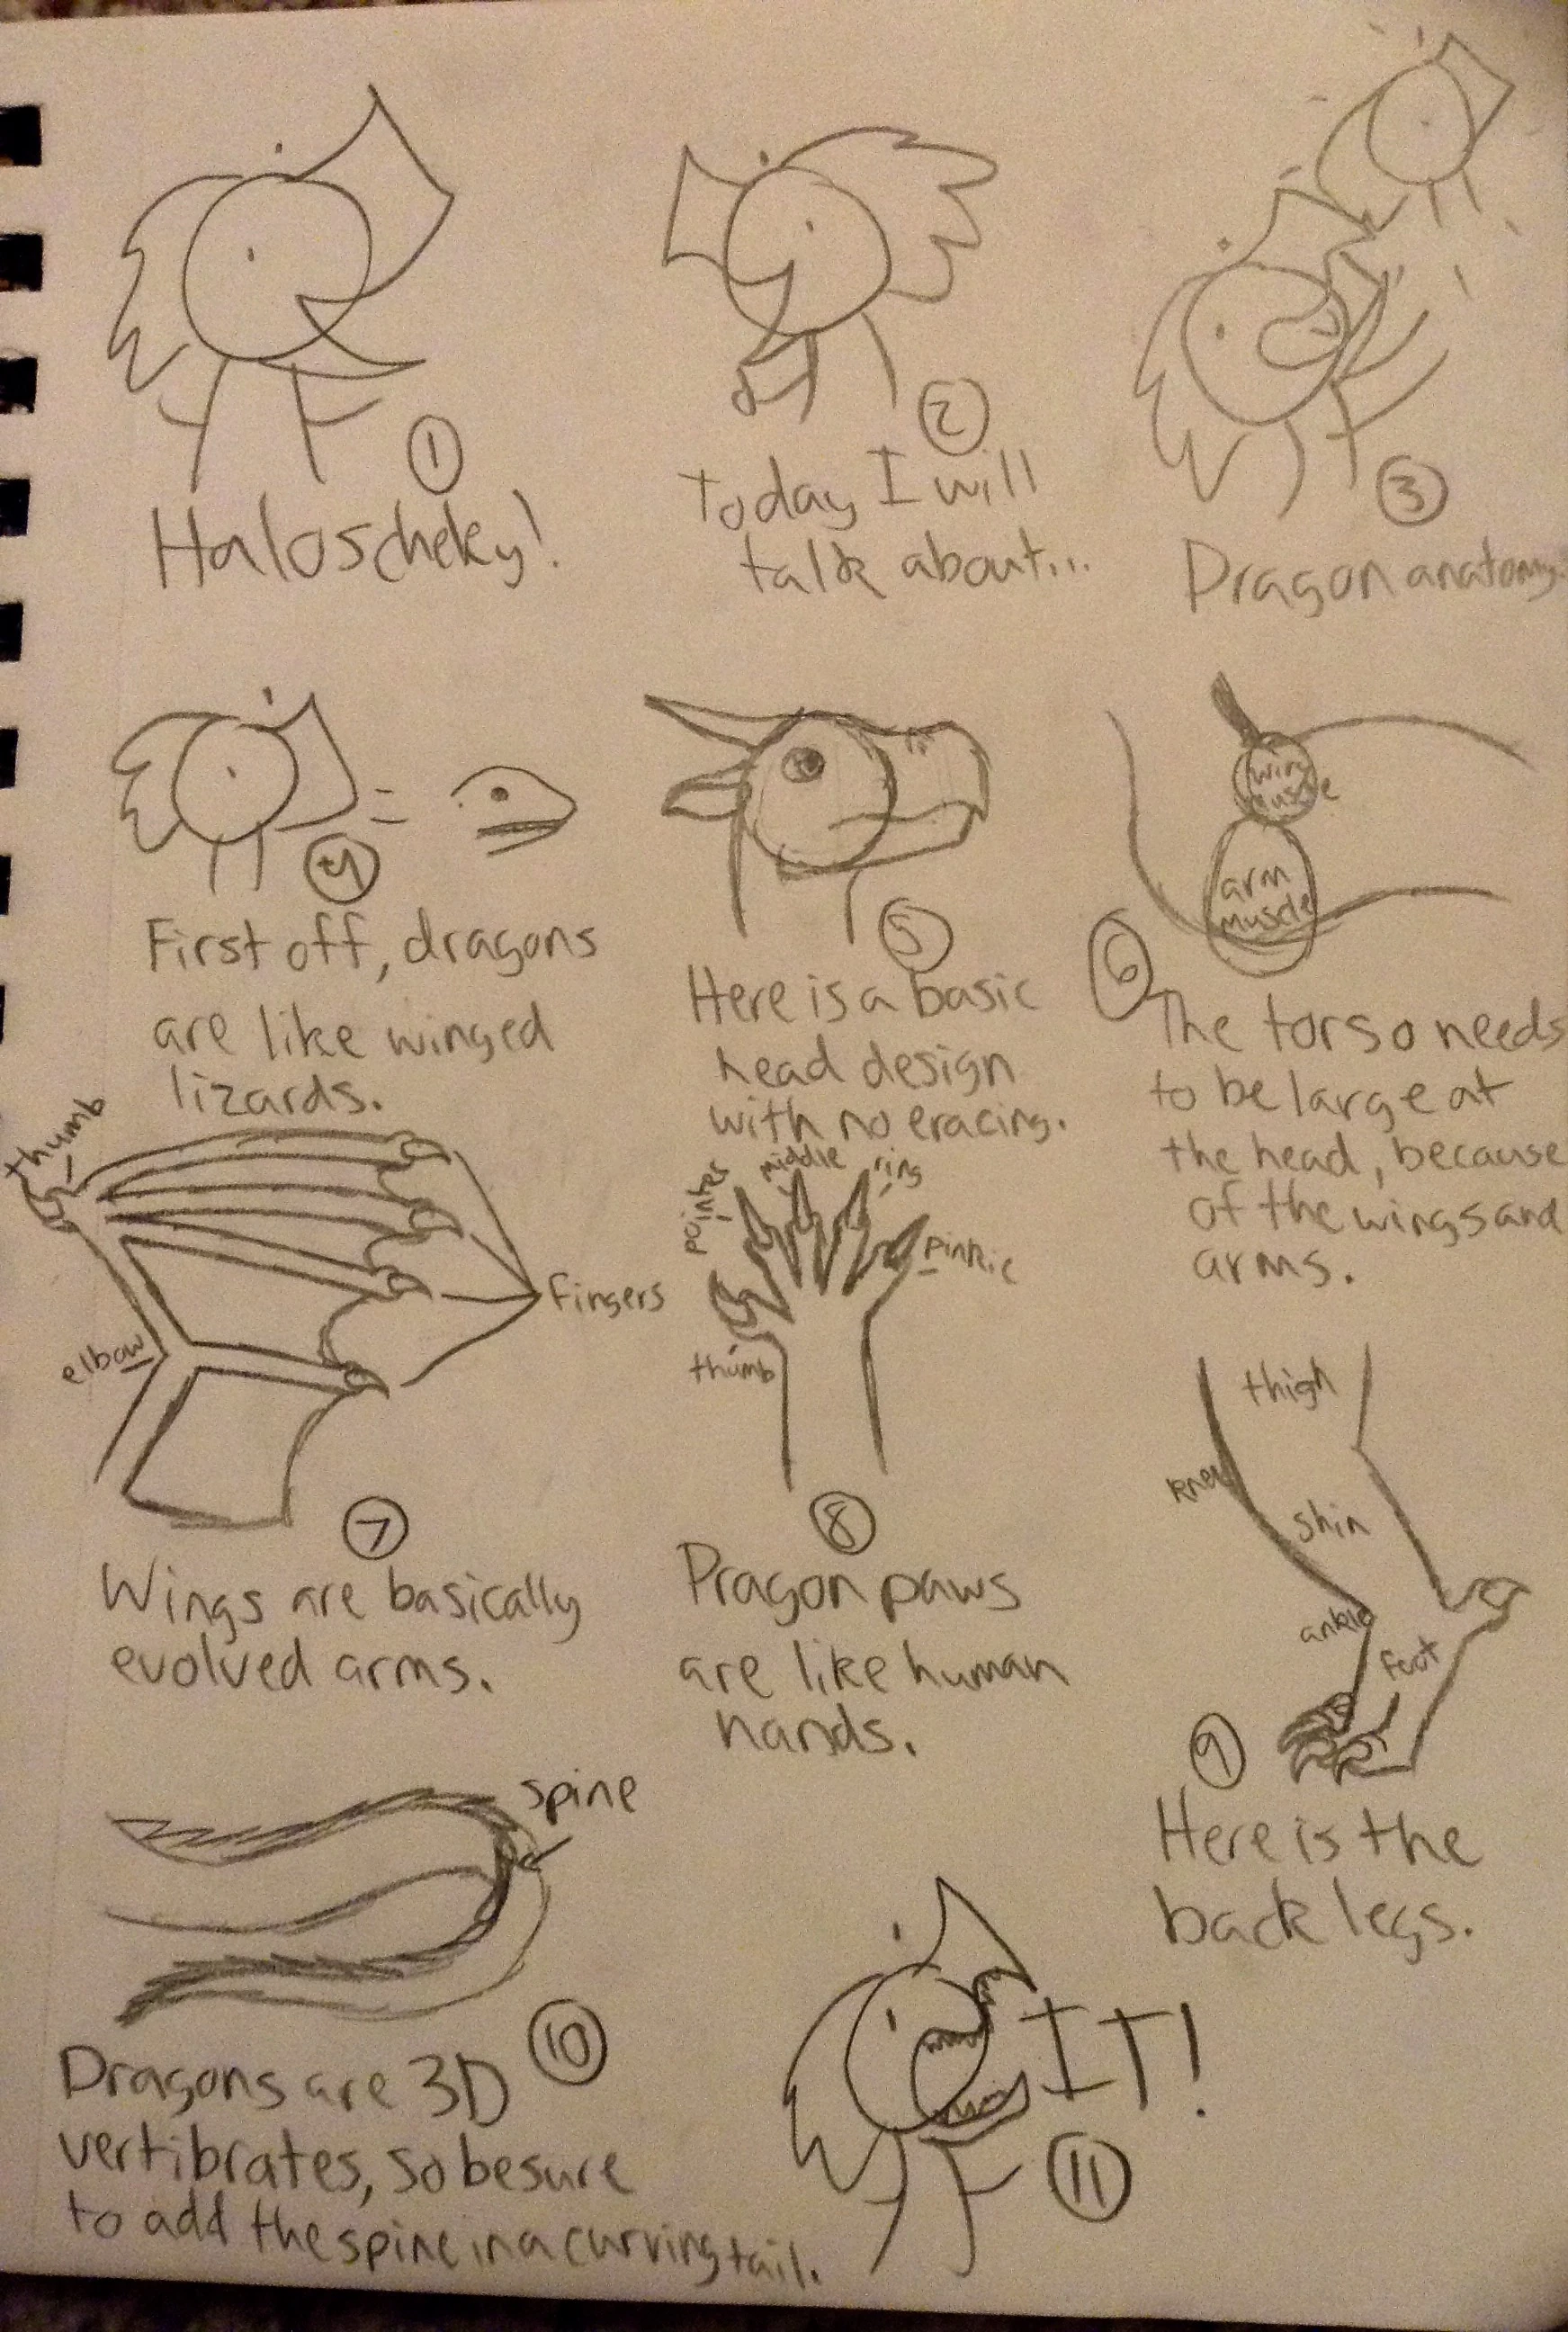 ①
Haloscheky!
②
Today I will
talk about...
③
Dragon anatomy.
=
④
First off, dragons
are like winged
lizards.
⑤
Here is a basic
head design
with no eracing.
wing
muscle
arm
muscle
⑥
The torso needs
to be large at
the head, because
of the wings and
arms.
thumb
fingers
elbow
⑦
Wings are basically
evolved arms.
pointer
middle
ring
pinkie
thumb
⑧
Dragon paws
are like human
hands.
thigh
knee
shin
ankle
foot
⑨
Here is the
back legs.
spine
⑩
Dragons are 3D
vertibrates, so be sure
to add the spine in a curving tail.
IT!
⑪